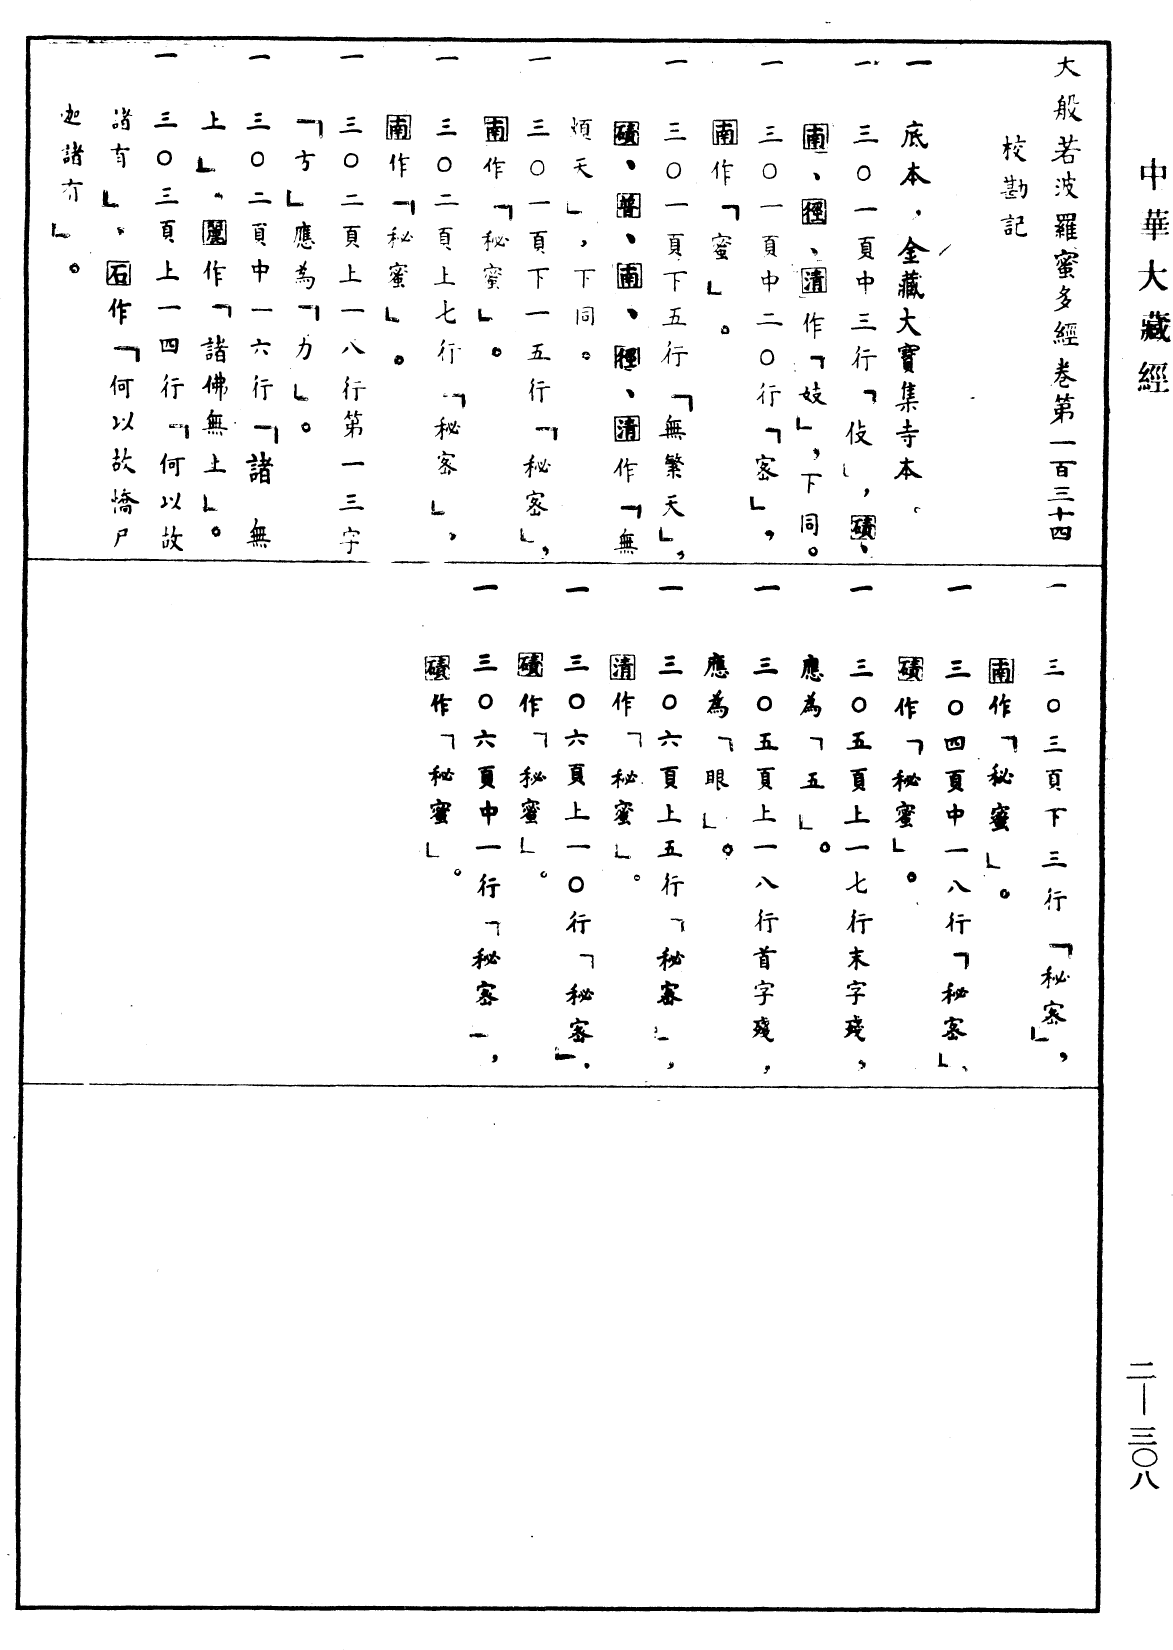 中華大藏經
大般若波羅蜜多經卷第一百三十四
校勘記
一 底本，金藏大寶集寺本。
一 三〇一頁中三行「伎」，磧、
南、徑、清作「妓」，下同。
一 三〇一頁中二〇行「密」，
南作「蜜」。
一 三〇一頁下五行「無繁天」，
磧、普、南、徑、清作「無
煩天」，下同。
一 三〇一頁下一五行「秘密」，
南作「秘蜜」。
一 三〇二頁上七行「秘密」，
南作「秘蜜」。
一 三〇二頁上一八行第一三字
「方」應為「力」。
一 三〇二頁中一六行「諸 無
上」，麗作「諸佛無上」。
一 三〇三頁上一四行「何以故
諸有」，石作「何以故憍尸
迦諸有」。
一 三〇三頁下三行「秘密」，
南作「秘蜜」。
一 三〇四頁中一八行「秘密」、
磧作「秘蜜」。
一 三〇五頁上一七行末字殘，
應為「五」。
一 三〇五頁上一八行首字殘，
應為「眼」。
一 三〇六頁上五行「秘密」，
清作「秘蜜」。
一 三〇六頁上一〇行「秘密」．
磧作「秘蜜」。
一 三〇六頁中一行「秘密」，
磧作「秘蜜」。
二—三〇八